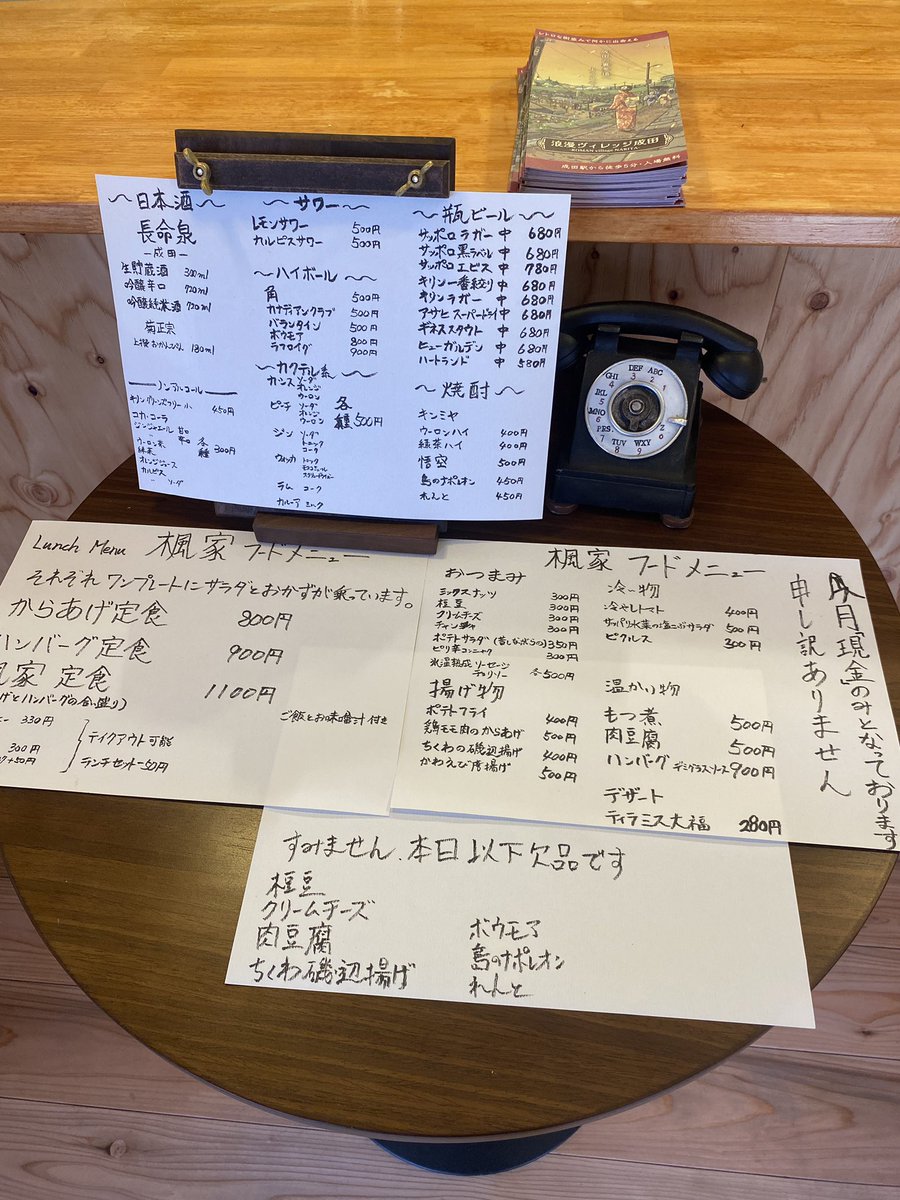 レトロな街並みで何かに出会える
浪漫ヴィレッジ成田
ROMAN village NARITA
成田駅から徒歩5分・入場無料
〜日本酒〜
長命泉
ー成田ー
生貯蔵酒 300ml
吟醸辛口 720ml
吟醸純米酒 720ml
菊正宗
180ml
ノンアルコール
450円
コカ・コーラ
ジンジャエール 甘口
〃 辛口
ウーロン茶
緑茶
各種 300円
オレンジジュース
カルピス
〃 ソーダ
〜サワー〜
レモンサワー 500円
カルピスサワー 500円
〜ハイボール〜
角 500円
カナディアンクラブ 500円
バランタイン 500円
ボウモア 800円
ラフロイグ 900円
〜カクテル系〜
カシス ソーダ
オレンジ
ウーロン
ピーチ ソーダ
オレンジ
ウーロン
各種 500円
ジン ソーダ
トニック
コーク
ウォッカ トニック
モスコミュール
スクリュードライバー
ラム コーク
カルーア ミルク
〜瓶ビール〜
サッポロ ラガー 中 680円
サッポロ黒ラベル 中 680円
サッポロ エビス 中 780円
キリン一番絞り 中 680円
キリンラガー 中 680円
アサヒ スーパードライ 中 680円
ギネススタウト 中 680円
ヒューガルデン 中 680円
ハートランド 中 580円
〜焼酎〜
キンミヤ
ウーロンハイ 400円
緑茶ハイ 400円
悟空 500円
島のナポレオン 450円
れんと 450円
GHI DEF ABC
JKL
MNO
PRS
TUV WXY
Z
Lunch Menu 楓家 フードメニュー
それぞれワンプレートにサラダとおかずが乗っています。
からあげ定食 800円
ハンバーグ定食 900円
楓家 定食 1100円
げとハンバーグの合い盛り)
ご飯とお味噌汁付き
ー 330円
300円
+50円
テイクアウト可能
ランチセット-50円
楓家 フードメニュー
おつまみ
ミックスナッツ 300円
枝豆 300円
クリームチーズ 300円
チャンジャ 300円
ポテトサラダ(昔しながらの) 350円
ピリ辛コンニャク 300円
氷温熟成 ソーセージ
チョリソー
各500円
揚げ物
ポテトフライ 400円
鶏モモ肉のからあげ 500円
ちくわの磯辺揚げ 400円
かわえび唐揚げ 500円
冷い物
冷やしトマト 400円
サッパリ水菜の塩こぶサラダ 500円
ピクルス 300円
温かい物
もつ煮 500円
肉豆腐 500円
ハンバーグ デミグラスソース 900円
デザート
ティラミス大福 280円
「現金」のみとなっております
申し訳ありません
すみません、本日以下欠品です
枝豆
クリームチーズ
肉豆腐
ちくわ磯辺揚げ
ボウモア
島のナポレオン
れんと